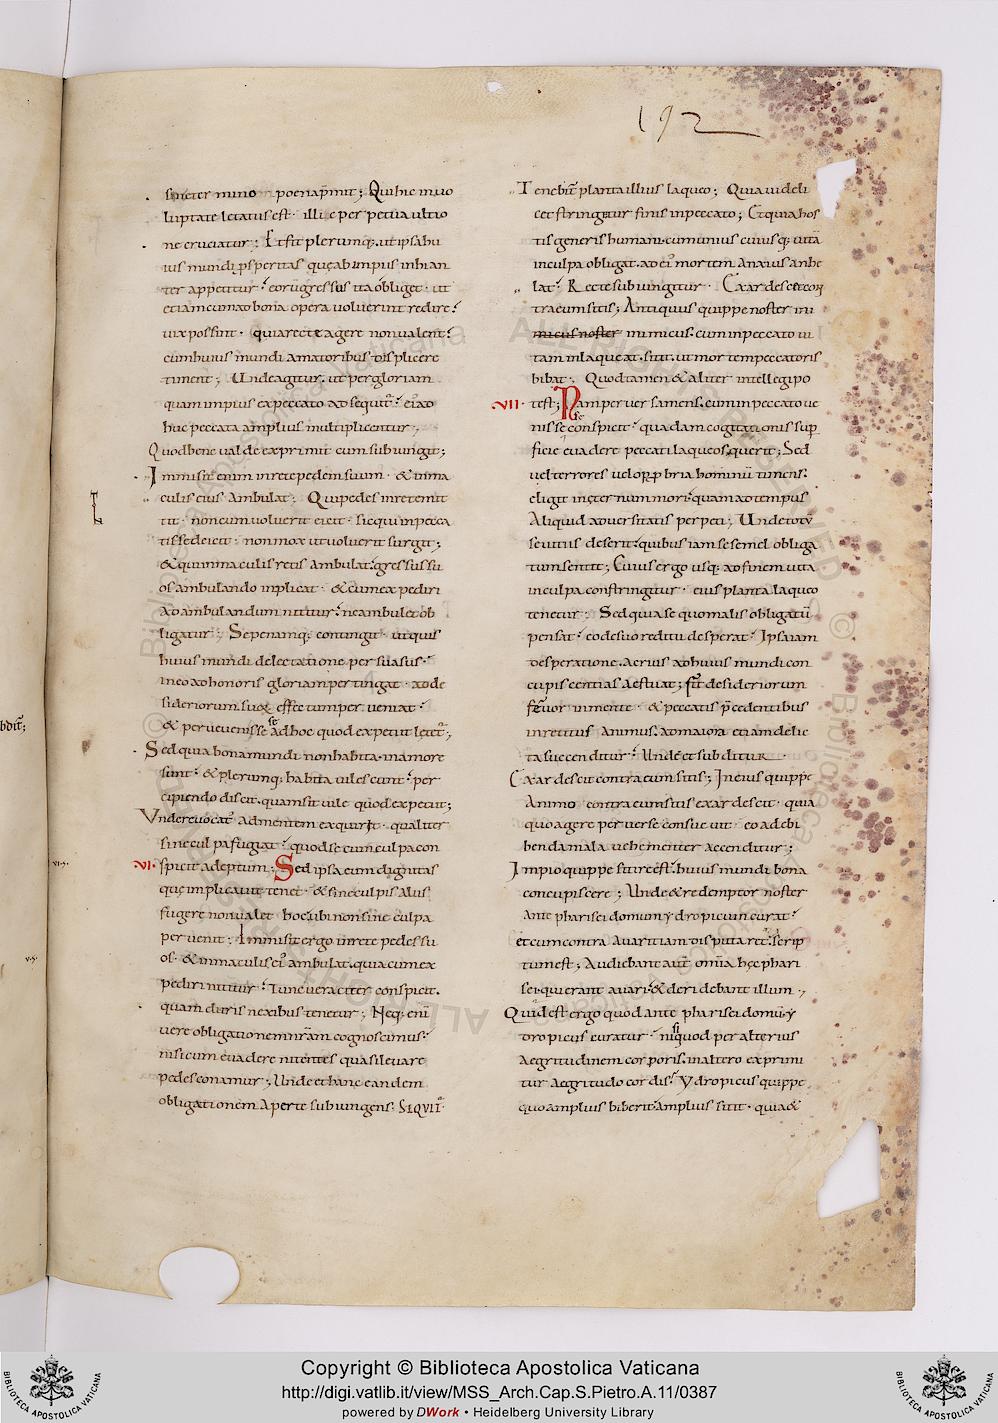 192
sincter mino poena p̄mit; Qui hic in uo
luptate letatus est· illic perpetua ultio
ne cruciatur; Et fit plerumq; ut ipsa hu
ius mundi ꝓsperitas quę ab impiis inhian
ter appetitur· eorū gressus ita obliget· ut
etiam cum ad bona opera voluerint redire·
vix possint· quia recte agere non valent·
cum huius mundi amatoribus displicere
timent; Unde agitur· ut per gloriam
quam impius ex peccato adsequit̄· ei ad
huc peccata amplius multiplicentur;
Quod bene valde exprimit cum subiungit;
Immisit enim in rete pedem suum· & in ma
culis eius ambulat; Qui pedes in rete mit
tit· non cum voluerit eicit· sic qui in pecca
tis se deicit· non mox ut voluerit surgit;
& qui in maculis retis ambulat· gressus su
os ambulando inplicat· & cum expediri
ad ambulandum nititur· ne ambulet ob
ligatur; Sepe namq; contingit· ut quis
huius mundi delectatione persuasus·
in eo ad honoris gloriam pertingat· ad de
sideriorum suoꝝ effectum perveniat·
& pervenisse se ad hoc quod expetit lętet̄;
Sed quia bona mundi non habita in amore
sunt· & plerumq; habita vilescunt· per
cipiendo discit· quam sit vile quod expetiit;
Unde revocat' ad mentem exquirit· qualiter
sine culpa fugiat· quod se cum culpa con
·VI· spicit adeptum; Sed ipsa eum dignitas
quę implicavit tenet· & sine culpis aliis
fugere non valet hoc· ubi non sine culpa
pervenit; Inmisit ergo in rete pedes su
os· & in maculis ei' ambulat· quia cum ex
pediri nititur· tunc veraciter conspicit·
quam duris nexibus tenetur; Neq; enī
vere obligationem nr̄am cognoscimus·
nisi cum evadere nitentes quasi levare
pedes conamur; Unde et hanc eandem
obligationem aperte subiungens· SEQVIT̄·
Tenebit̄ planta illius laqueo; Quia videli
cet stringitur finis in peccato; Et quia hos
tis generis humani· cum unius cuiusq; vitā
in culpa obligat· ad ei' mortem anxius anhe
lat· Recte subiungitur· Exardescet con
tra eum sitis; Antiquus quippe noster ini
micus noster inimicus· cum in peccato vi
tam inlaqueat· sitit· ut mortem peccatoris
bibat· Quod tamen & aliter intellegi po
·VII· test; Nam perversa mens· cum in peccato ve
nisse se conspicit· quadam cogitationis sup̄
ficie evadere peccati laqueos querit; Sed
vel terrores vel opprobria hominū timens·
eligit in ęternum mori· quam ad tempus
aliquid adversitatis perpeti; Unde totū
se vitiis deserit· quibus iam se semel obliga
tum sentit; Cuius ergo usq; ad finem vita
in culpa constringitur· eius planta laqueo
tenetur; Sed quia se quo malis obligatū
pensat· eo de suo reditu desperat· Ipsa iam
desperatione acrius ad huius mundi con
cupiscentias aestuat; fit desideriorum
fervor in mente· & peccatis p̄cedentibus
inretitus animus· ad maiora etiam delic
ta succenditur· Unde et subditur
Exardescit contra eum sitis; In eius quippe
animo contra eum sitis exardescit· quia
quo agere perverse consuevit· eo ad ebi
benda mala vehementer accenditur;
Impio quippe sitire est· huius mundi bona
concupiscere; Unde & redemptor noster
ante pharisei domum ydropicum curat·
et cum contra avaritiam disputaret· scrip
tum est; Audiebant aut̄ om̄ia hęc phari
sei· qui erant avari· & deridebant illum;
Quid est ergo quod ante pharisei domū y
dropicus curatur· nisi quod per alterius
aegritudinem corporis· in altero exprimi
tur aegritudo cordis· ydropicus quippe
quo amplius biberit· amplius sitit· quia &
bdit̄;
·VI·
V·S·
Copyright © Biblioteca Apostolica Vaticana
http://digi.vatlib.it/view/MSS_Arch.Cap.S.Pietro.A.11/0387
powered by DWork • Heidelberg University Library